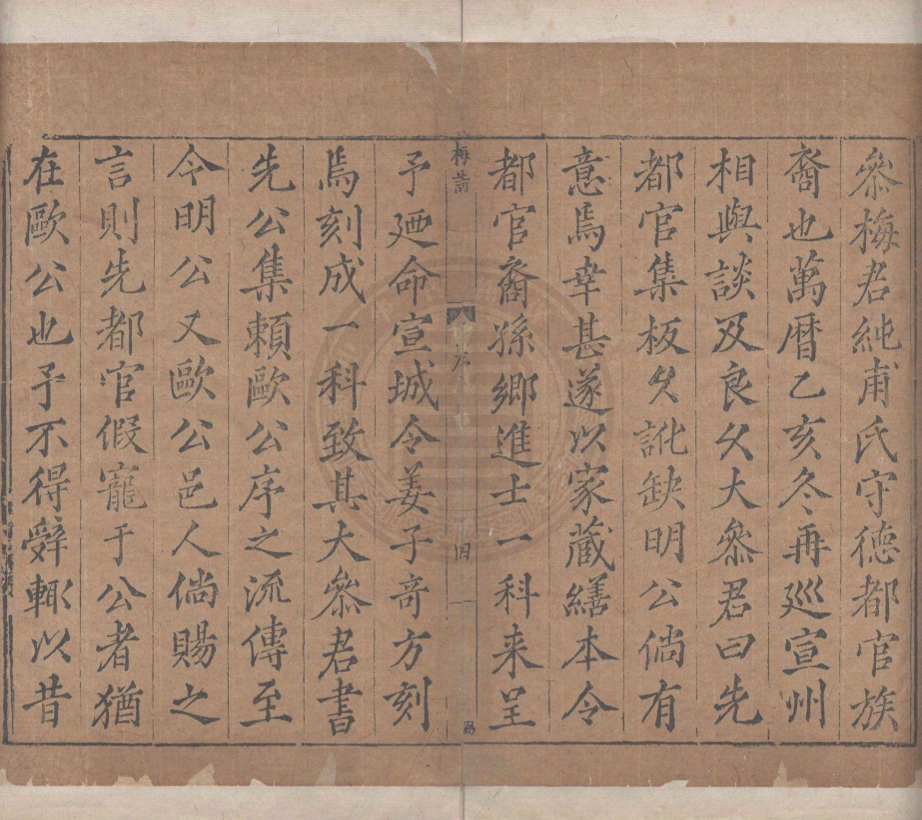 叅梅君純甫氏守德都官族
裔也萬曆乙亥冬再廵宣州
相與談及良久大叅君曰先
都官集板久訛缺明公倘有
意焉幸甚遂以家藏繕本令
都官裔孫鄉進士一科来呈
梅
序
四
予廼命宣城令姜子竒方刻
焉刻成一科致其大叅君書
先公集頼歐公序之流傳至
今明公又歐公邑人倘賜之
言則先都官假寵于公者猶
在歐公也予不得辤輙以昔